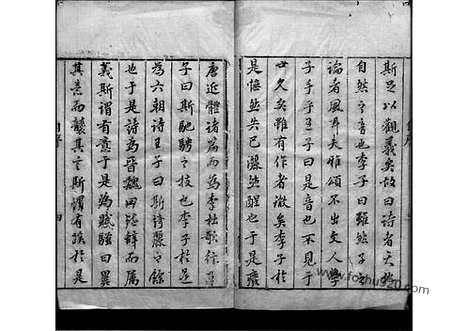 斯足以觀義矣故曰詩者天地
自然之音也李子曰雖然子之
論者風耳夫雅頌不出文人學
子手乎王子曰是音也不見于
世久矣雖有作者微矣李子於
是憮然失已灑然醒也于是廢
唐近體諸篇而為李杜歌行王
子曰斯馳騁之技也李子於是
為六朝詩王子曰斯綺麗之餘
也于是詩為晉魏曰比辭而屬
義斯謂有意于是為賦騷曰異
其意而襲其言斯謂有蹊於是
自序
www.fozhu920.com